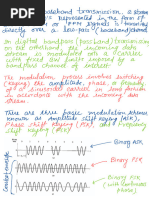 baseband transmission, a stream
is represented in the form of
signals is transmitted
directly over a low-pass/baseband channel
In digital bandpass (pass band) transmission
on the otherhand, the incoming data
stream is modulated onto a carrier
with fixed band limits imposed by
a bandpass channel of interest.
The modulation process involves switching
(keying) the amplitude, phase, or frequency
of a sinusoidal carrier in some fashion
in accordance with the incoming data
stream.
There are three basic modulation schemes
known as Amplitude shift Keying (ASK),
Phase Shift Keying (PSK), and Frequency
Shift Keying (FSK).
Binary ASK
Binary PSK
Binary FSK
with continuous
phase)
Constant envelope